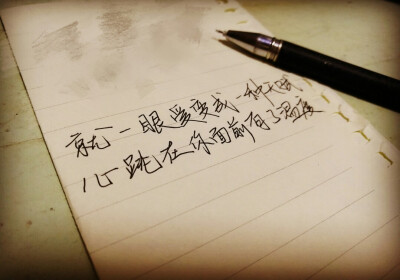 就一眼爱变成一种天赋
心跳在你面前有了温度